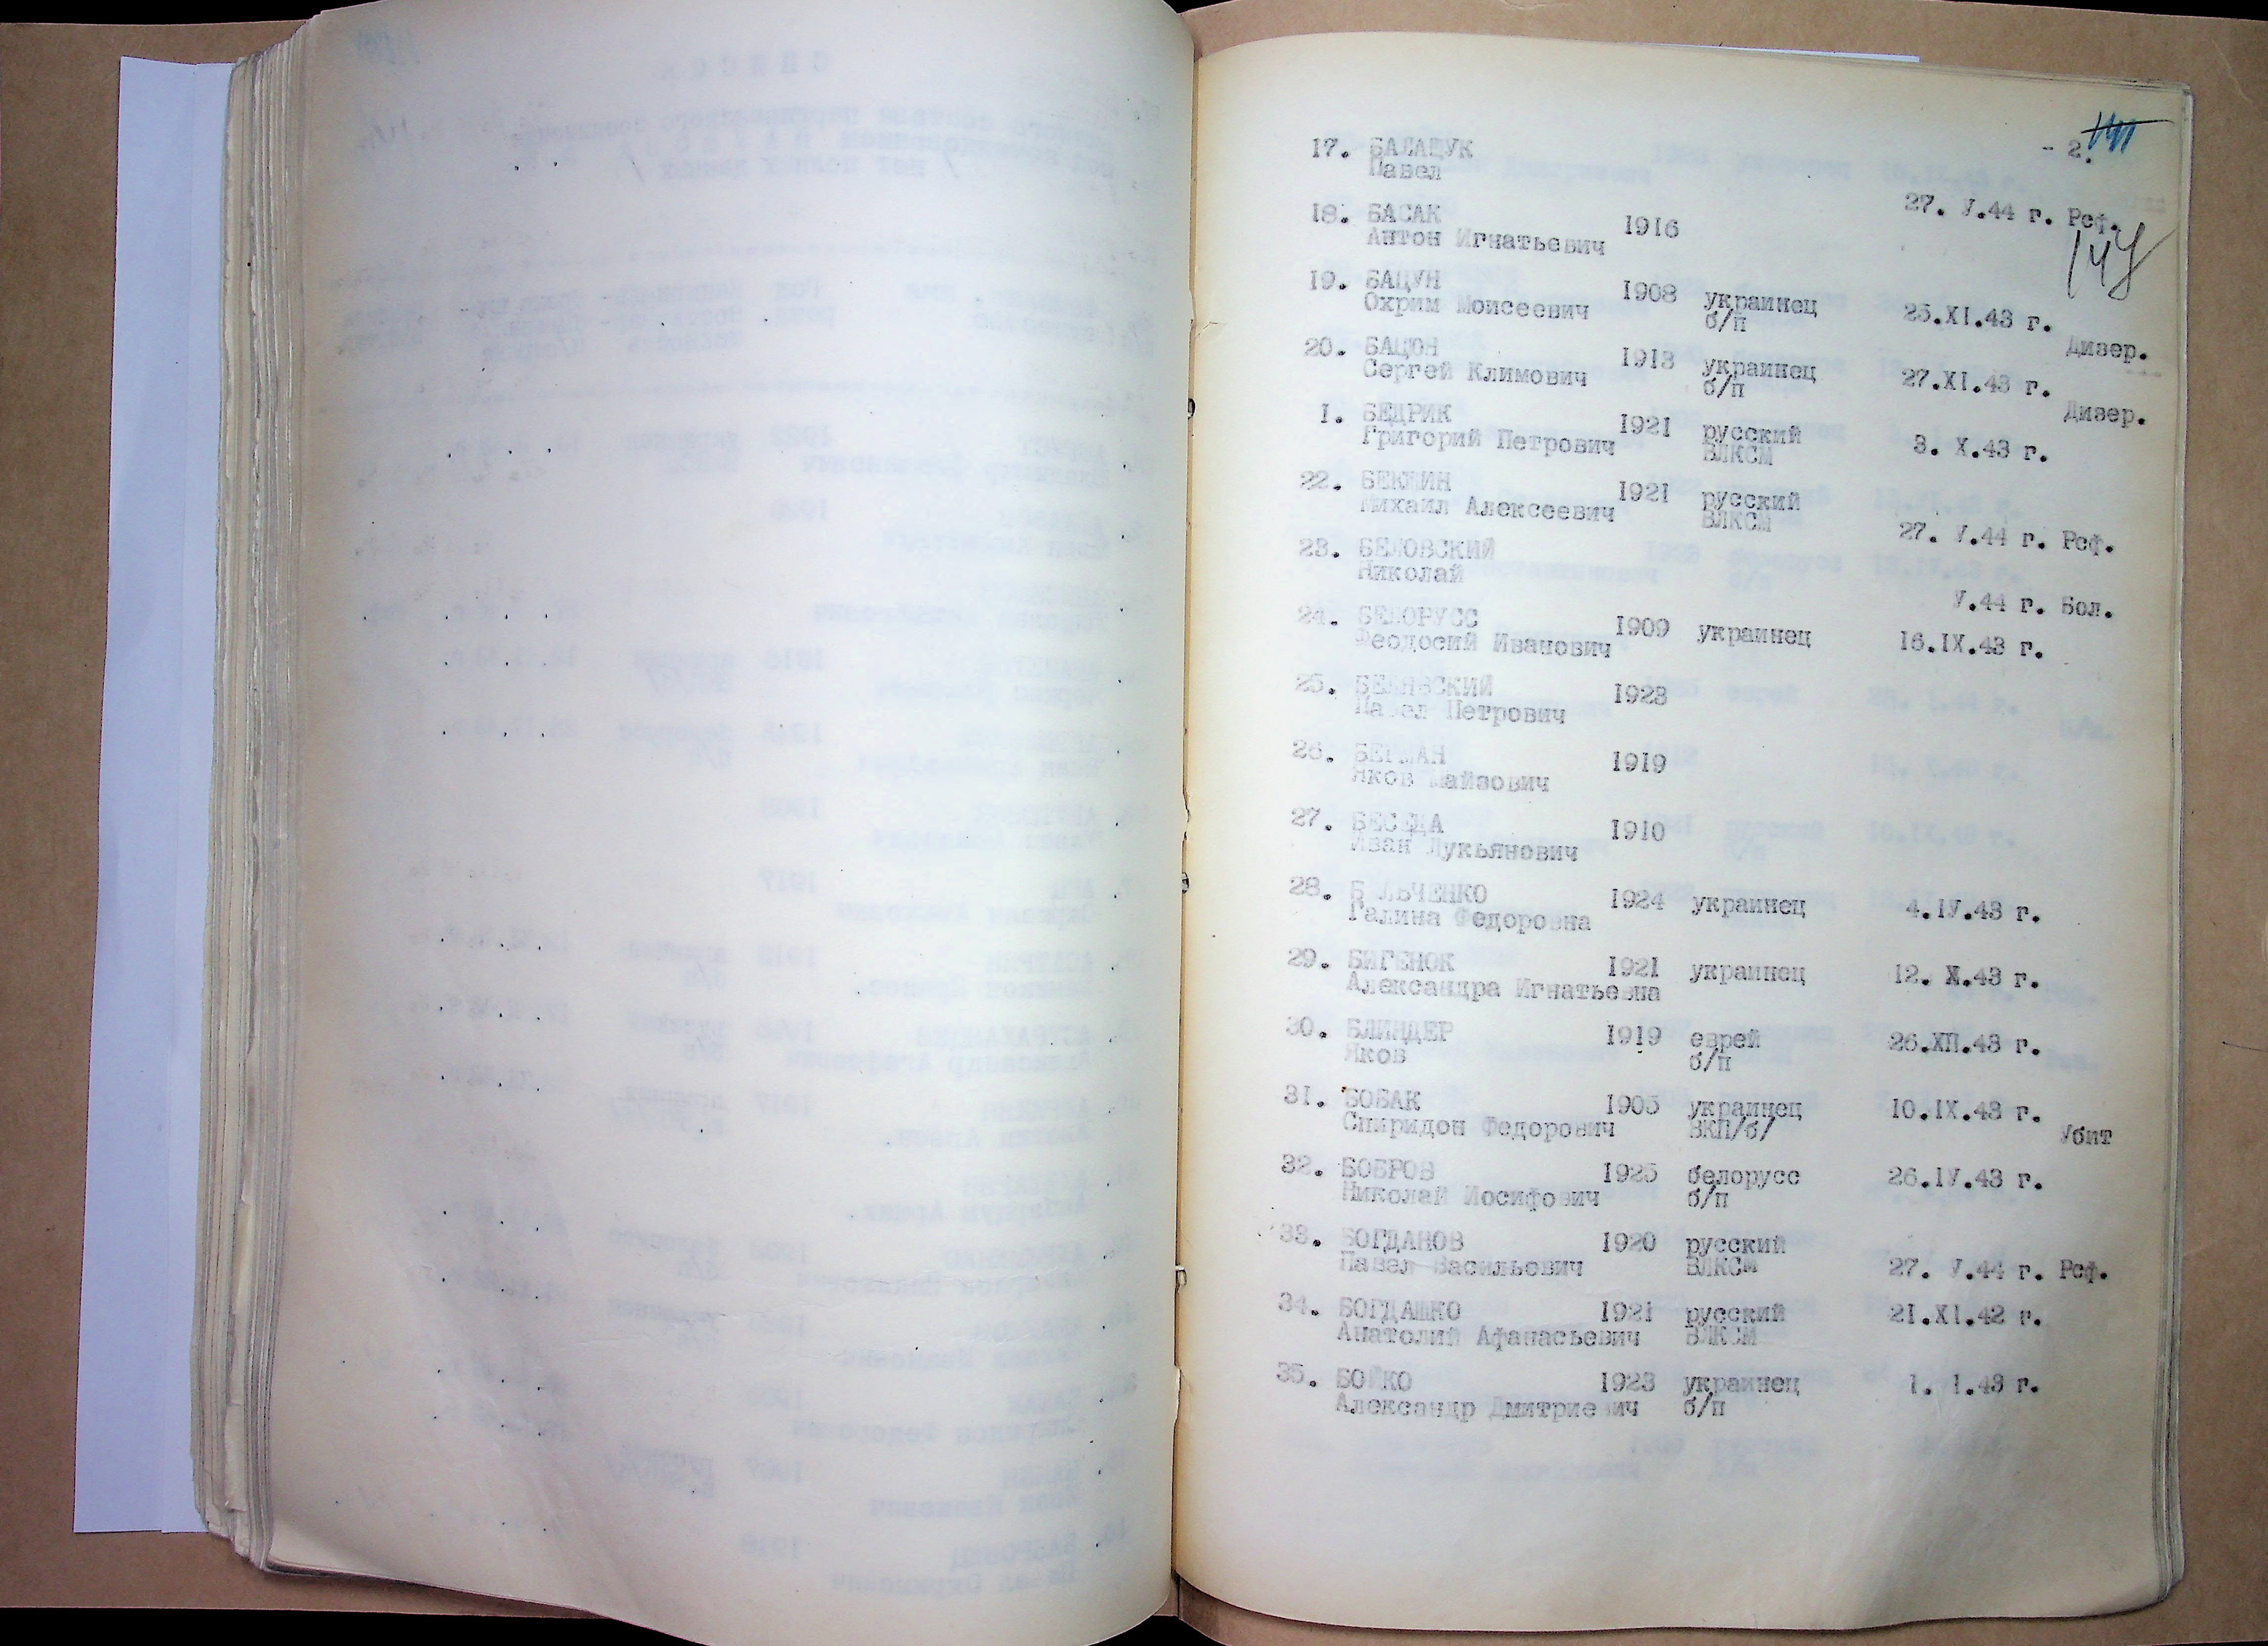 - 2.
147
17. БАЛАЩУК
Павел
18. БАСАК 1916 27. У.44 г. Реф.
Антон Игнатьевич
19. БАЦУН 1908 украинец 25.XI.43 г.
Охрим Моисеевич б/п Дизер.
20. БАЦЮН 1913 украинец 27.XI.43 г.
Сергей Климович б/п Дизер.
1. БЕДРИК 1921 русский 3. X.43 г.
Григорий Петрович ВЛКСМ
22. БЕКШИН 1921 русский
Михаил Алексеевич ВЛКСМ 27. У.44 г. Реф.
23. БЕЛОВСКИЙ
Николай У.44 г. Бол.
24. БЕЛОРУСС 1909 украинец 16.IX.43 г.
Феодосий Иванович
25. БЕЛЯВСКИЙ 1923
Павел Петрович
26. БЕРМАН 1919
Яков Майзович
27. БЕСЕДА 1910
Иван Лукьянович
28. Б ЛЬЧЕНКО 1924 украинец 4.IУ.43 г.
Галина Федоровна
29. БИГЕНОК 1921 украинец 12. X.43 г.
Александра Игнатьевна
30. БЛИНДЕР 1919 еврей 26.XII.43 г.
Яков б/п
31. БОБАК 1905 украинец 10.IX.43 г.
Спиридон Федорович ВКП/б/ Убит
32. БОБРОВ 1925 белорусс 26.IУ.43 г.
Николай Иосифович б/п
33. БОГДАНОВ 1920 русский
Павел Васильевич ВЛКСМ 27. У.44 г. Реф.
34. БОГДАШКО 1921 русский 21.XI.42 г.
Анатолий Афанасьевич ВЛКСМ
35. БОЙКО 1923 украинец 1. 1.43 г.
Александр Дмитриевич б/п